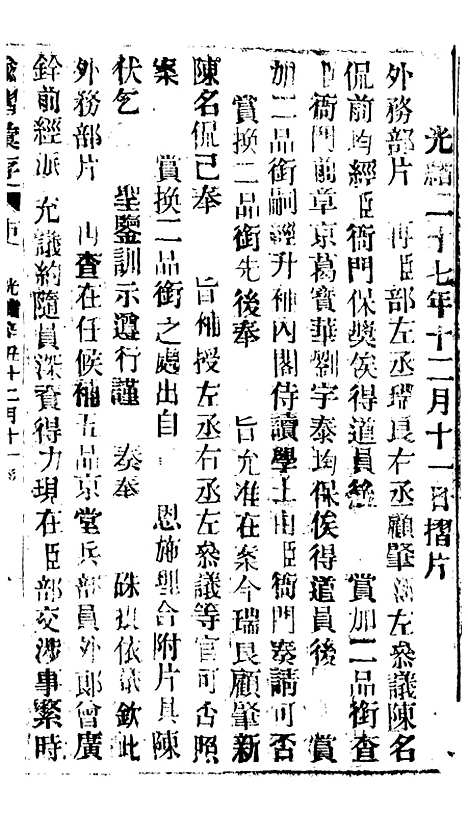 光緒二十七年十二月十一日摺片
外務部片　再臣部左丞瑞良右丞顧肇新左參議陳名
侃前均經臣衙門保獎俟得道員後　賞加二品銜查
臣衙門前章京葛寶華劉宇泰均保俟得道員後　賞
加二品銜嗣經升補內閣侍讀學士由臣衙門奏請可否
賞換二品銜先後奉　旨允准在案今瑞良顧肇新
陳名侃已奉　旨補授左丞右丞左參議等官可否照
案　賞換二品銜之處出自　恩施理合附片具陳
伏乞　聖鑒訓示遵行謹　奏奉　硃批依議欽此
外務部片　再查在任候補五品京堂兵部員外郎曾廣
銓前經派充議約隨員深資得力現在臣部交涉事繁時
諭摺彙存　光緒辛丑十二月十一